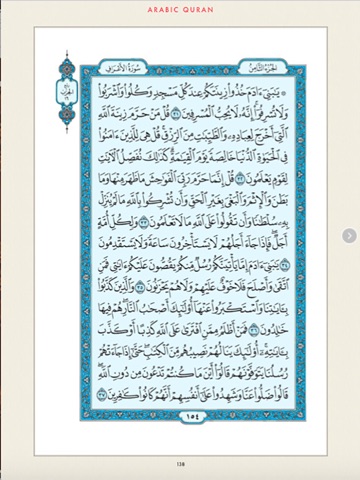 ARABIC QURAN
سُورَةُ الأَعْرَافِ
الجُزْءُ الثَّامِنُ
الحِزْب
۞ يَٰبَنِىٓ ءَادَمَ خُذُوا۟ زِينَتَكُمْ عِندَ كُلِّ مَسْجِدٍ وَكُلُوا۟ وَٱشْرَبُوا۟
وَلَا تُسْرِفُوٓا۟ إِنَّهُۥ لَا يُحِبُّ ٱلْمُسْرِفِينَ ٣١ قُلْ مَنْ حَرَّمَ زِينَةَ ٱللَّهِ
ٱلَّتِىٓ أَخْرَجَ لِعِبَادِهِۦ وَٱلطَّيِّبَٰتِ مِنَ ٱلرِّزْقِ قُلْ هِىَ لِلَّذِينَ ءَامَنُوا۟
فِى ٱلْحَيَوٰةِ ٱلدُّنْيَا خَالِصَةً يَوْمَ ٱلْقِيَٰمَةِ كَذَٰلِكَ نُفَصِّلُ ٱلْءَايَٰتِ
لِقَوْمٍ يَعْلَمُونَ ٣٢ قُلْ إِنَّمَا حَرَّمَ رَبِّىَ ٱلْفَوَٰحِشَ مَا ظَهَرَ مِنْهَا وَمَا
بَطَنَ وَٱلْإِثْمَ وَٱلْبَغْىَ بِغَيْرِ ٱلْحَقِّ وَأَن تُشْرِكُوا۟ بِٱللَّهِ مَا لَمْ يُنَزِّلْ
بِهِۦ سُلْطَٰنًا وَأَن تَقُولُوا۟ عَلَى ٱللَّهِ مَا لَا تَعْلَمُونَ ٣٣ وَلِكُلِّ أُمَّةٍ
أَجَلٌ فَإِذَا جَآءَ أَجَلُهُمْ لَا يَسْتَأْخِرُونَ سَاعَةً وَلَا يَسْتَقْدِمُونَ
٣٤ يَٰبَنِىٓ ءَادَمَ إِمَّا يَأْتِيَنَّكُمْ رُسُلٌ مِّنكُمْ يَقُصُّونَ عَلَيْكُمْ ءَايَٰتِى فَمَنِ
ٱتَّقَىٰ وَأَصْلَحَ فَلَا خَوْفٌ عَلَيْهِمْ وَلَا هُمْ يَحْزَنُونَ ٣٥ وَٱلَّذِينَ كَذَّبُوا۟
بِـَٔايَٰتِنَا وَٱسْتَكْبَرُوا۟ عَنْهَآ أُو۟لَٰٓئِكَ أَصْحَٰبُ ٱلنَّارِ هُمْ فِيهَا
خَٰلِدُونَ ٣٦ فَمَنْ أَظْلَمُ مِمَّنِ ٱفْتَرَىٰ عَلَى ٱللَّهِ كَذِبًا أَوْ كَذَّبَ
بِـَٔايَٰتِهِۦٓ أُو۟لَٰٓئِكَ يَنَالُهُمْ نَصِيبُهُم مِّنَ ٱلْكِتَٰبِ حَتَّىٰٓ إِذَا جَآءَتْهُمْ
رُسُلُنَا يَتَوَفَّوْنَهُمْ قَالُوٓا۟ أَيْنَ مَا كُنتُمْ تَدْعُونَ مِن دُونِ ٱللَّهِ
قَالُوا۟ ضَلُّوا۟ عَنَّا وَشَهِدُوا۟ عَلَىٰٓ أَنفُسِهِمْ أَنَّهُمْ كَانُوا۟ كَٰفِرِينَ ٣٧
١٥٤
138